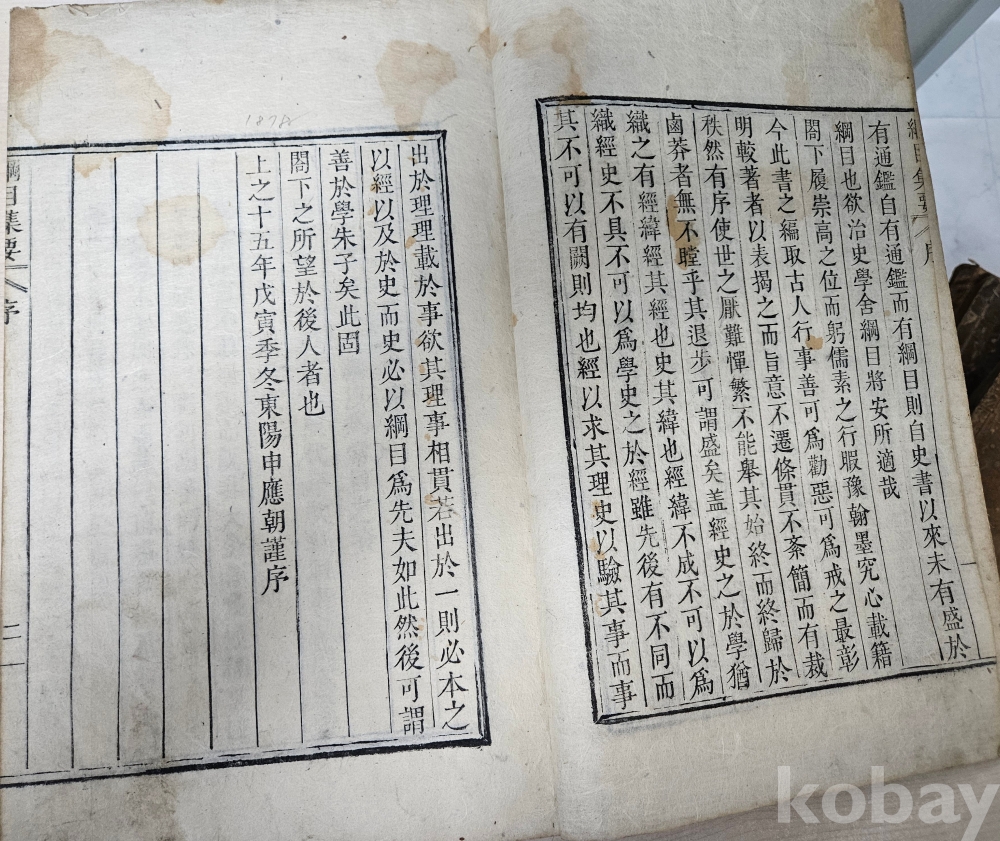 綱目集要 序
有通鑑自有通鑑而有綱目則自史書以來未有盛於
綱目也欲治史學舍綱目將安所適哉
閤下履崇高之位而躬儒素之行暇豫翰墨究心載籍
今此書之編取古人行事善可爲勸惡可爲戒之最彰
明較著者以表揭之而旨意不遷條貫不紊簡而有裁
秩然有序使世之厭難憚繁不能舉其始終而終歸於
鹵莽者無不瞠乎其退步可謂盛矣盖經史之於學猶
織之有經緯經其經也史其緯也經緯不成不可以爲
織經史不具不可以爲學史之於經雖先後有不同而
其不可以有闕則均也經以求其理史以驗其事而事
出於理理載於事欲其理事相貫若出於一則必本之
以經以及於史而史必以綱目爲先夫如此然後可謂
善於學朱子矣此固
閤下之所望於後人者也
上之十五年戊寅季冬東陽申應朝謹序
綱目集要 序
二
1878
kobay